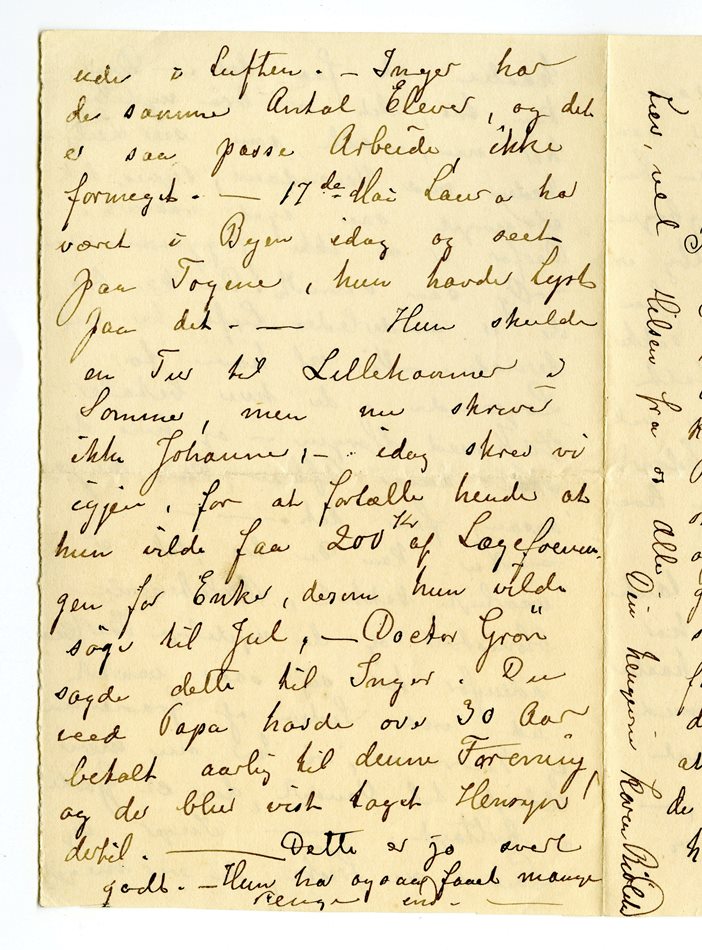 ude i Luften. — Inger har
de samme Antal Elever, og det
er saa passe Arbeide, ikke
formeget. — 17de Mai Laura har
været i Byen idag og seet
paa Togene, hun havde Lyst
paa det. — Hun skulde
en Tur til Lillehammer i
Sommer, men nu skriver
ikke Johanne, — idag skrev vi
igjen, for at fortælle hende at
hun vilde faa 200 Kr af Lægeforenin-
gen for Enker, dersom hun vilde
søge til Jul, — Doctor Grøn
sagde dette til Inger. Du
veed Papa havde over 30 Aar
betalt aarlig til denne Forening,
og der blir vist taget Hensyn
dertil. — Dette er jo svert
godt. — Hun har ogsaa faaet mange
Penge
Lev vel Hilsen fra os Alle
Din hengivne Karen